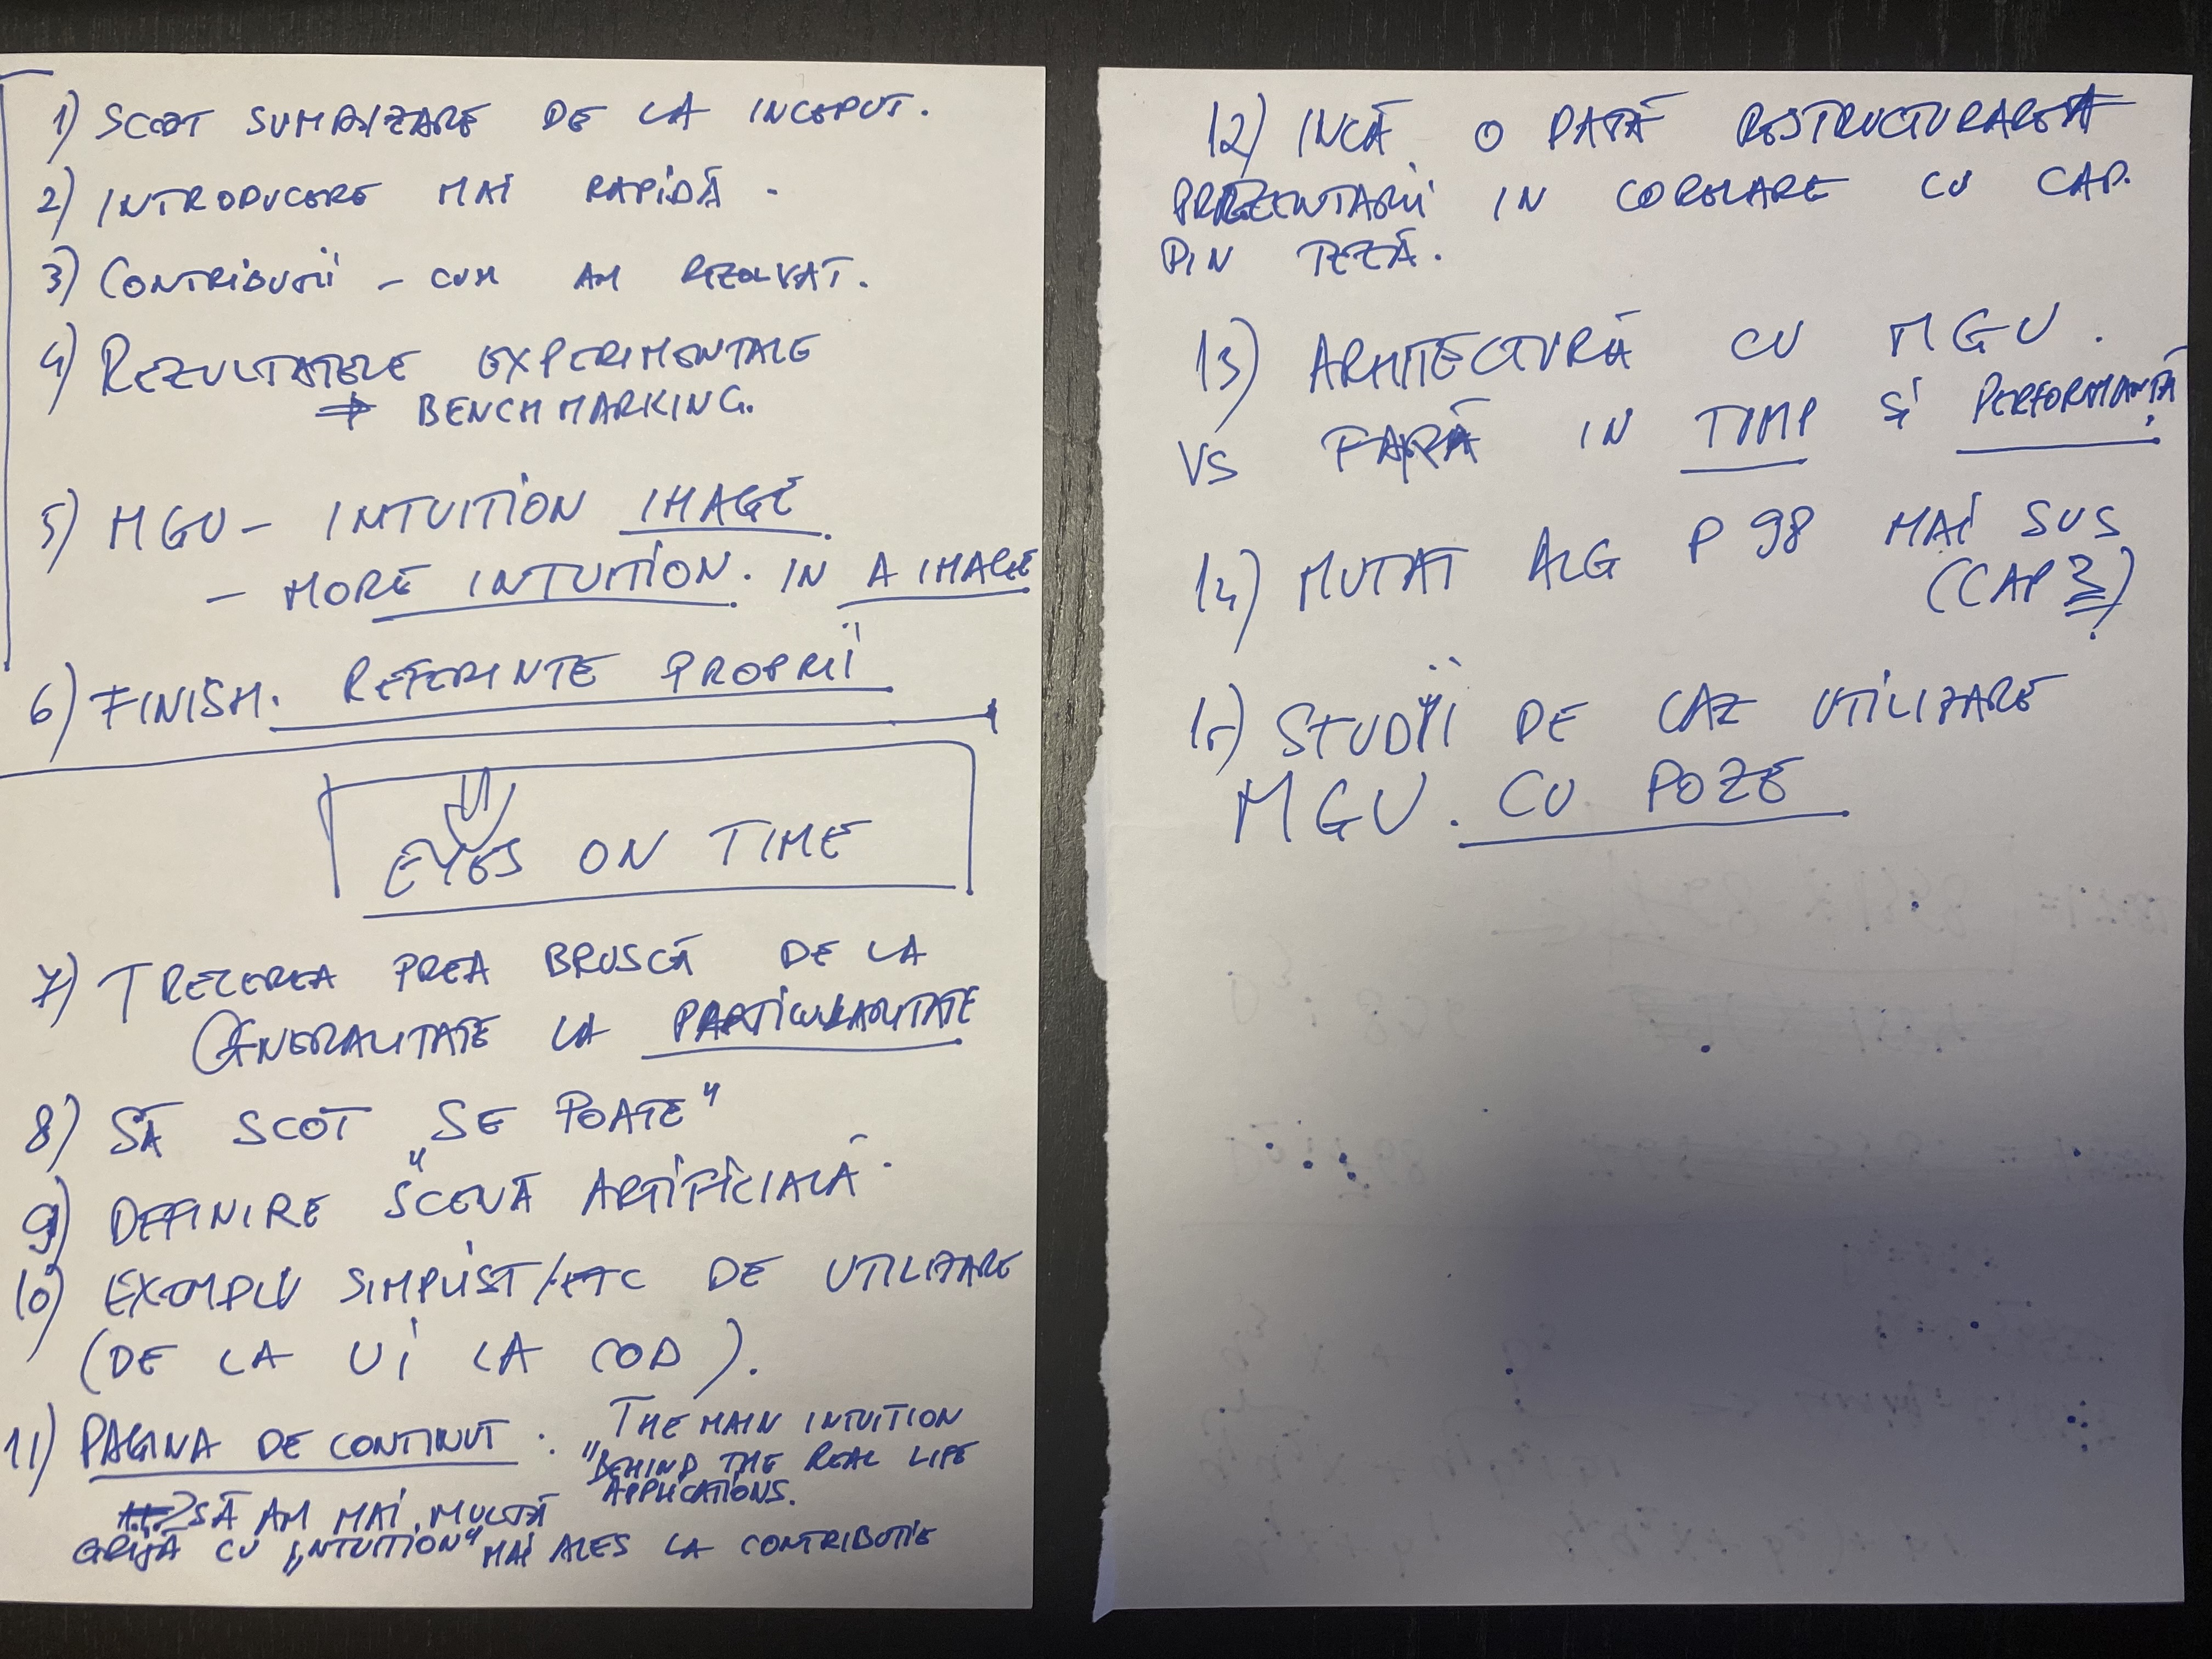 1) SCOT SUMARIZARE DE LA INCEPUT.
2) INTRODUCERE MAI RAPIDĂ.
3) CONTRIBUTII - CUM AM REZOLVAT.
4) REZULTATELE EXPERIMENTALE
⇒ BENCHMARKING.
5) MGU - INTUITION IMAGE.
- MORE INTUITION. IN A IMAGE
6) FINISH. REFERINTE PROPRII
EYES ON TIME
7) TRECEREA PREA BRUSCĂ DE LA
GENERALITATE LA PARTICULARITATE
8) SĂ SCOT „SE POATE"
9) DEFINIRE "SCENĂ ARTIFICIALĂ.
10) EXEMPLU SIMPLIST/ETC DE UTILIZARE
(DE LA UI LA COD).
11) PAGINA DE CONTINUT. THE MAIN INTUITION
"BEHIND THE REAL LIFE
APPLICATIONS.
SĂ AM MAI MULTĂ
GRIJĂ CU „INTUITION" MAI ALES LA CONTRIBUTIE
12) INCĂ O DATĂ RESTRUCTURAREA
PREZENTARII IN CORELARE CU CAP.
DIN TEZĂ.
13) ARHITECTURĂ CU MGU.
VS FARĂ IN TIMP ȘI PERFORMANȚĂ
14) MUTAT ALG P 98 MAI SUS
(CAP 3)
15) STUDII DE CAZ UTILIZARE
MGU. CU POZE